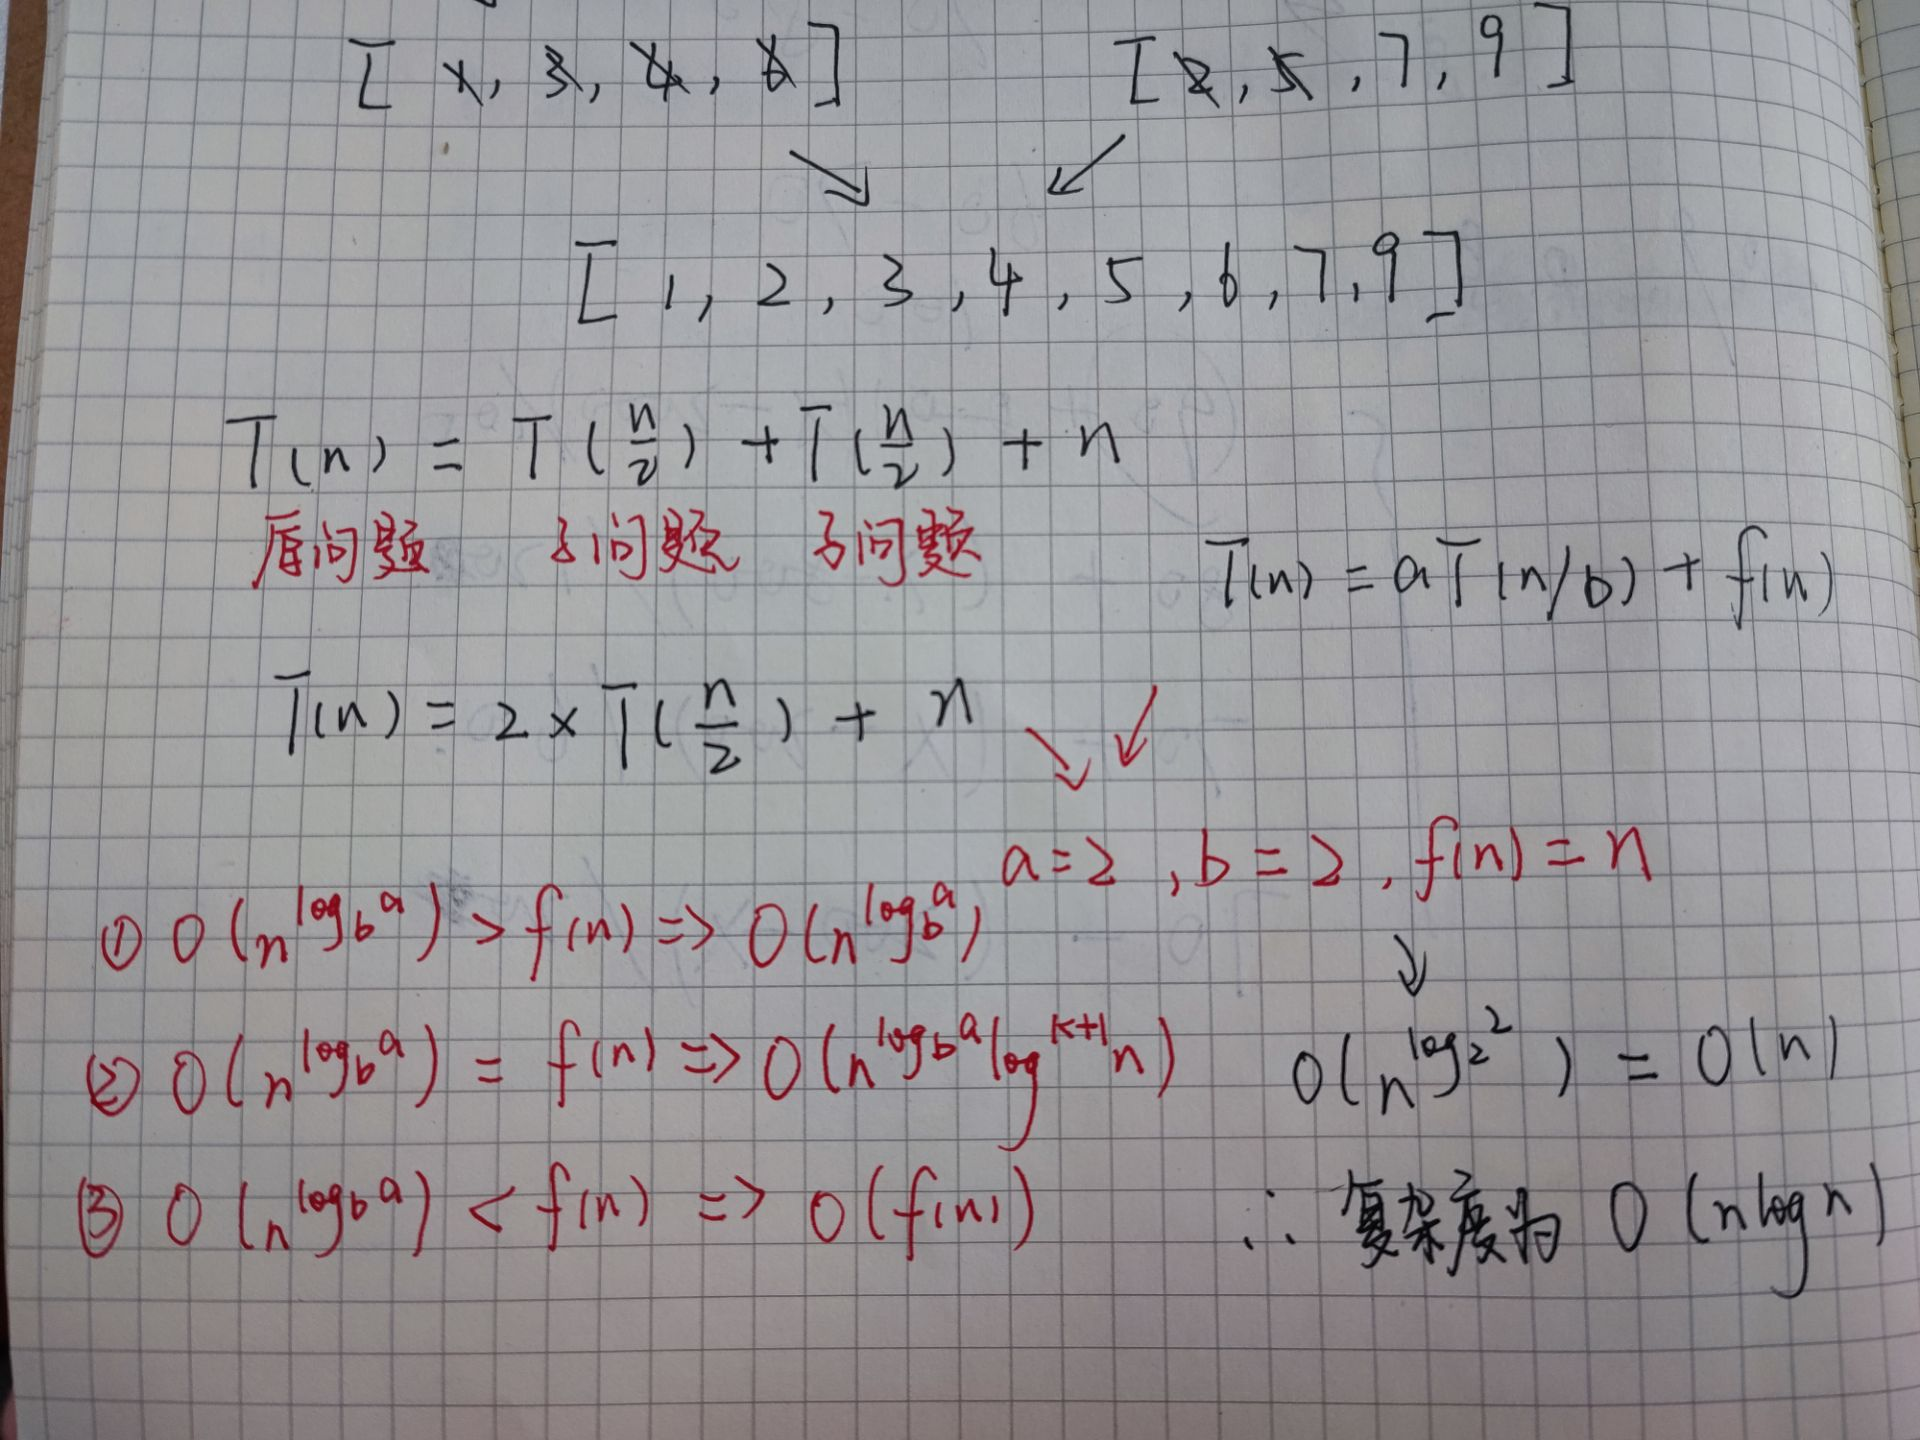 [ 1, 3, 4, 6 ] [ 2, 5, 7, 9 ]
[ 1, 2, 3, 4, 5, 6, 7, 9 ]
T(n) = T(n/2) + T(n/2) + n
原问题 子问题 子问题
T(n) = aT(n/b) + f(n)
T(n) = 2 × T(n/2) + n
a=2, b=2, f(n)=n
① O(n^(log_b a)) > f(n) => O(n^(log_b a))
② O(n^(log_b a)) = f(n) => O(n^(log_b a) log^(k+1) n)
O(n^(log_2 2)) = O(n)
③ O(n^(log_b a)) < f(n) => O(f(n))
∴ 复杂度为 O(nlogn)